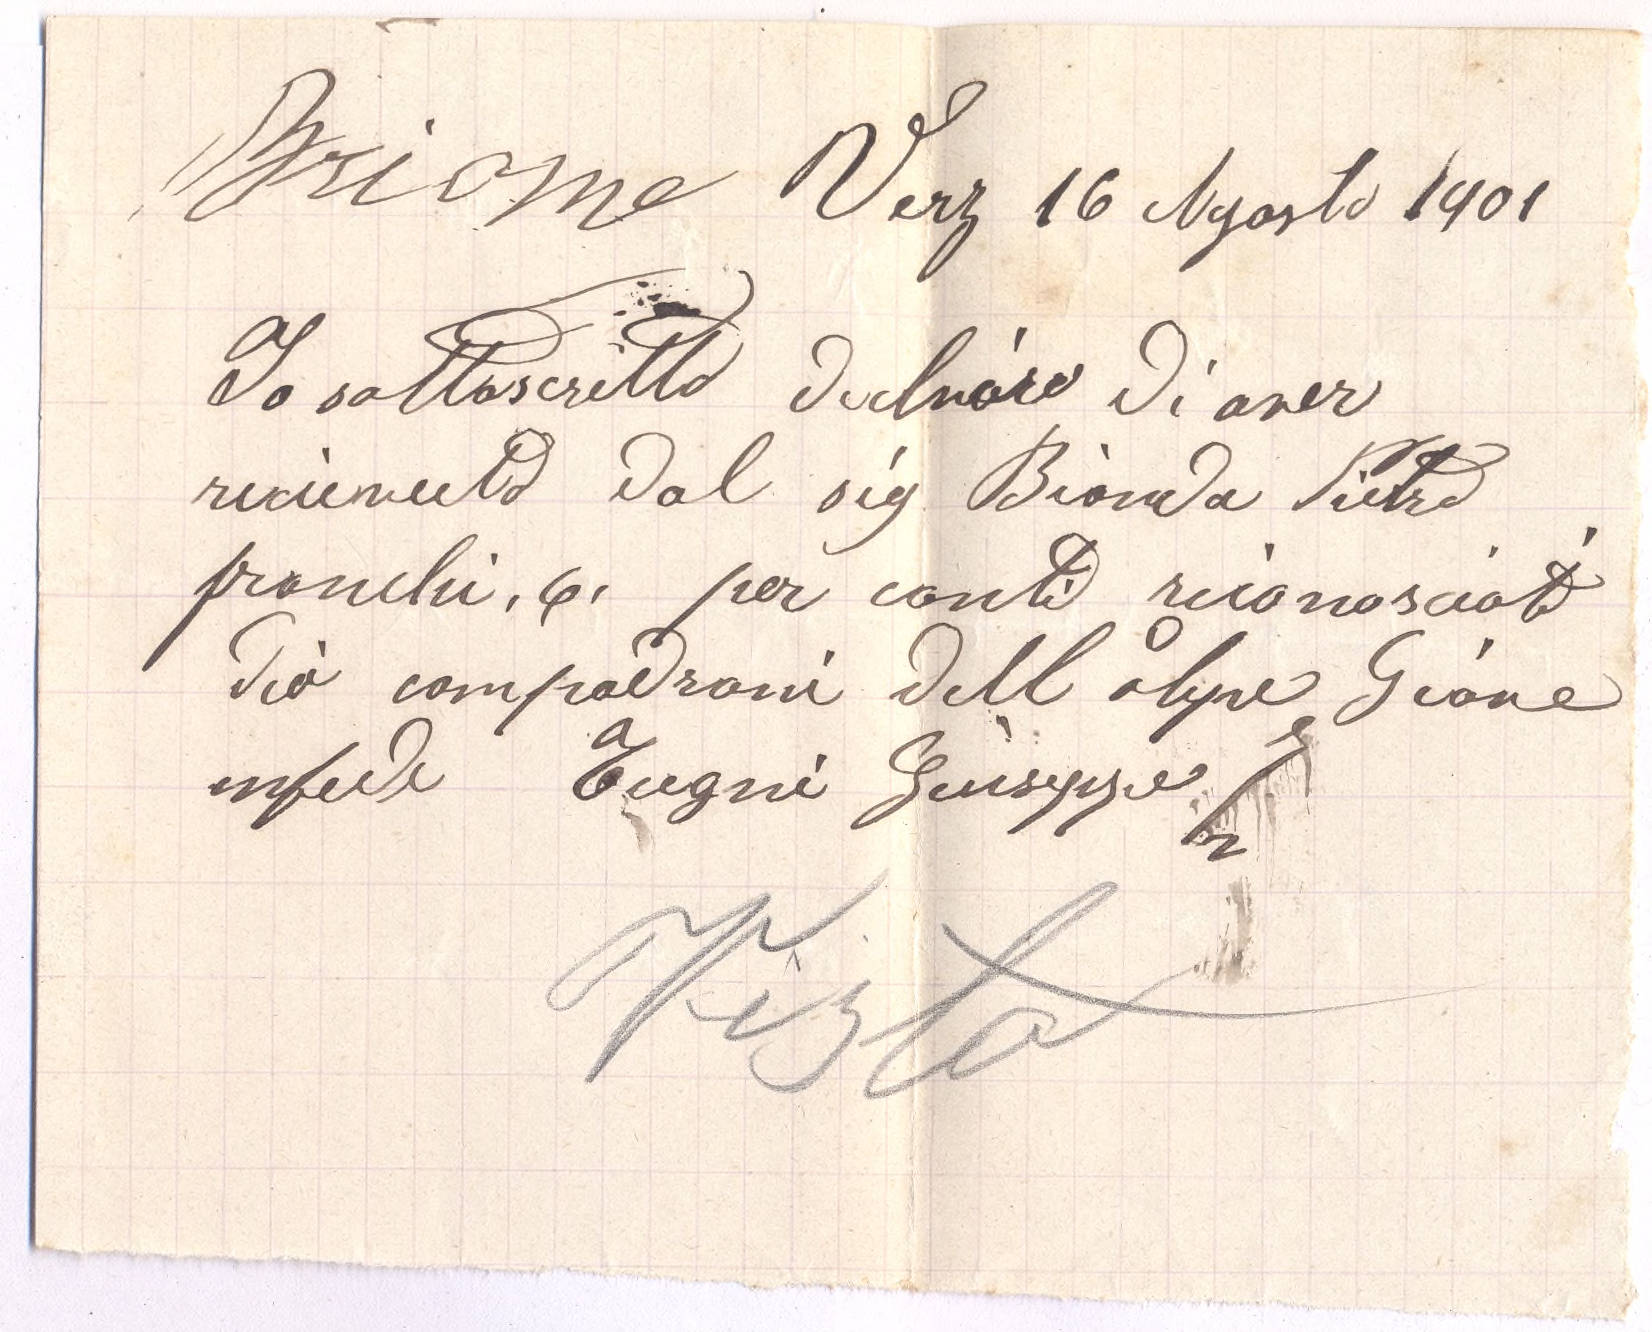 Brione Verz 16 Agosto 1901
Io sottoscritto dichiaro di aver
ricievuto dal sig Bionda Pietro
franchi, 6, per conti riconoscioti
dai compadroni dell alpe
infede Tugni Giuseppe
Visto